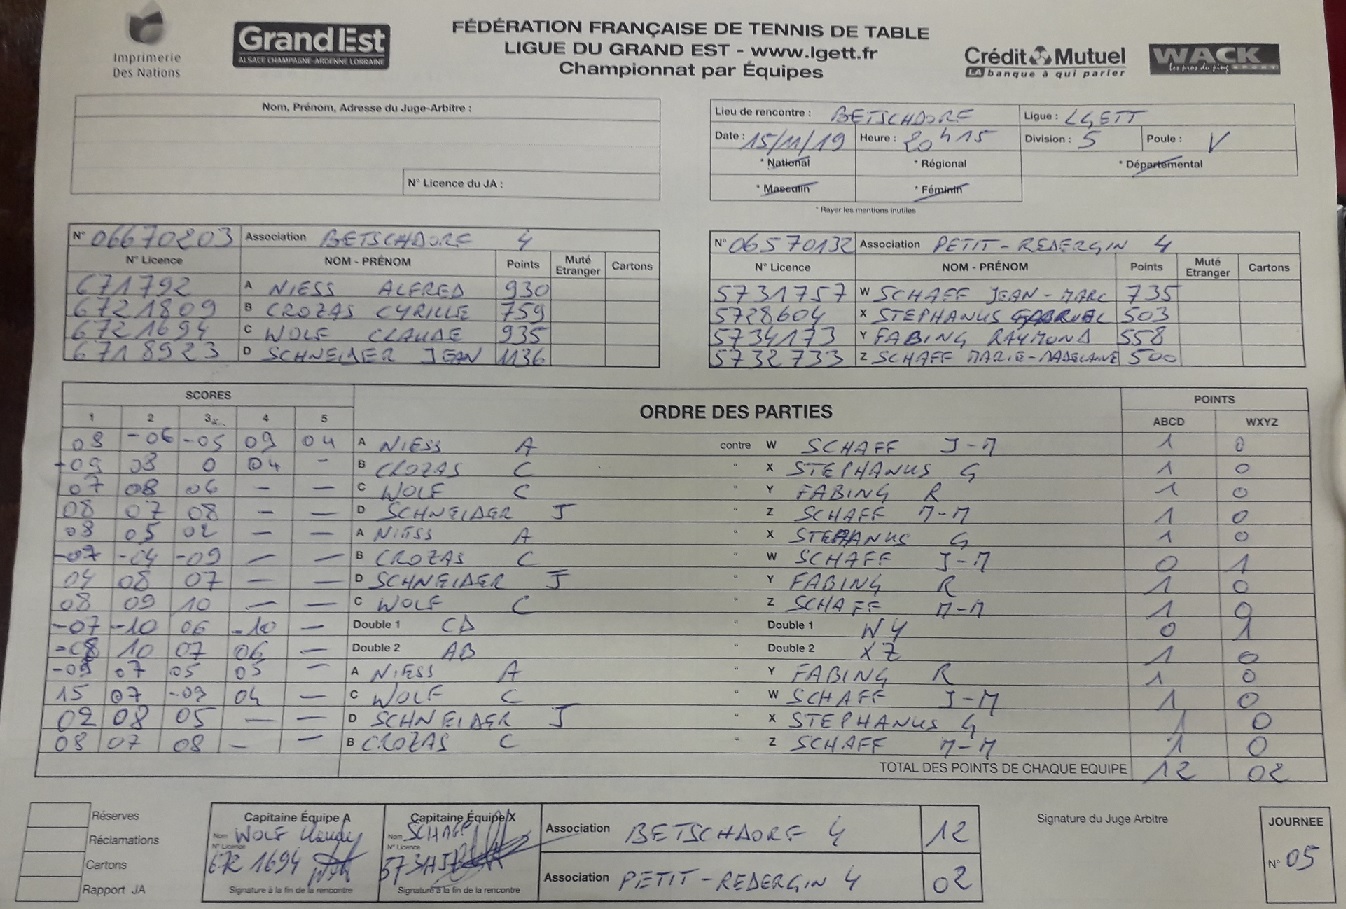 Imprimerie
Des Nations
Grand Est
ALSACE CHAMPAGNE-ARDENNE LORRAINE
FÉDÉRATION FRANÇAISE DE TENNIS DE TABLE
LIGUE DU GRAND EST - www.lgett.fr
Championnat par Équipes
Crédit Mutuel
LA banque à qui parler
WACK
Nom, Prénom, Adresse du Juge-Arbitre :
N° Licence du JA :
Lieu de rencontre : BETSCHDORF Ligue : LGETT
Date : 15/11/19 Heure : 20h15 Division : 5 Poule : V
* National * Régional * Départemental
* Masculin * Féminin
* Rayer les mentions inutiles
N° 06670203 Association BETSCHDORF 4
N° Licence NOM - PRÉNOM Points Muté Etranger Cartons
671792 A NIESS ALFRED 930
6721809 B CROZAS CYRILLE 759
6721694 C WOLF CLAUDE 935
6718923 D SCHNEIDER JEAN 1136
N° 06570132 Association PETIT-REDERGIN 4
N° Licence NOM - PRÉNOM Points Muté Etranger Cartons
5731757 W SCHAFF JEAN-MARC 735
5728604 X STEPHANUS GABRIEL 503
5734173 Y FABING RAYMOND 558
5732733 Z SCHAFF MARIE-MADELAINE 500
SCORES ORDRE DES PARTIES POINTS
1 2 3 4 5 ABCD WXYZ
08 -06 -05 09 04 A NIESS A contre W SCHAFF J-M 1 0
-09 08 0 04 - B CROZAS C " X STEPHANUS G 1 0
07 08 06 - - C WOLF C " Y FABING R 1 0
08 07 08 - - D SCHNEIDER J " Z SCHAFF M-M 1 0
08 05 02 - - A NIESS A " X STEPHANUS G 1 0
-07 -04 -09 - - B CROZAS C " W SCHAFF J-M 0 1
04 08 07 - - D SCHNEIDER J " Y FABING R 1 0
08 09 10 - - C WOLF C " Z SCHAFF M-M 1 0
-07 -10 06 -10 - Double 1 CD " Double 1 WY 0 1
-08 10 07 06 - Double 2 AB " Double 2 XZ 1 0
-09 07 05 05 - A NIESS A " Y FABING R 1 0
15 07 -09 04 - C WOLF C " W SCHAFF J-M 1 0
02 08 05 - - D SCHNEIDER J " X STEPHANUS G 1 0
08 07 08 - - B CROZAS C " Z SCHAFF M-M 1 0
TOTAL DES POINTS DE CHAQUE EQUIPE 12 02
Réserves
Réclamations
Cartons
Rapport JA
Capitaine Équipe A
Nom WOLF Claude
N° Licence
672 1694
Signature à la fin de la rencontre
Capitaine Équipe X
Nom SCHAFF
N° Licence
Signature à la fin de la rencontre
Association BETSCHDORF 4 12
Association PETIT-REDERGIN 4 02
Signature du Juge Arbitre
JOURNEE
N° 05